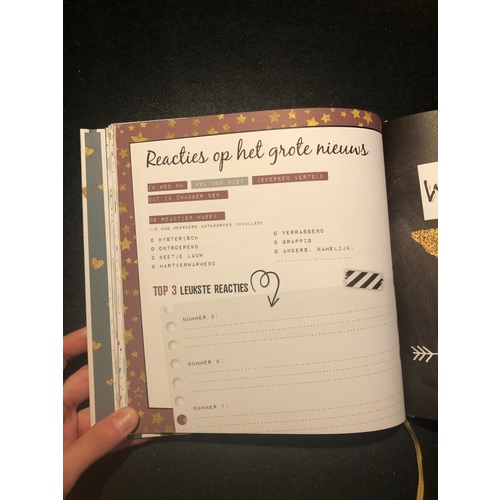 Reacties op het grote nieuws
IK HEB NU WEL NOG NIET IEDEREEN VERTELD
DAT IK ZWANGER BEN.
DE REACTIES WAREN:
(JE MAG MEERDERE ANTWOORDEN INVULLEN)
O HYSTERISCH
O ONTROEREND
O BEETJE LAUW
O HARTVERWARMEND
O VERRASSEND
O GRAPPIG
O ANDERS, NAMELIJK:
TOP 3 LEUKSTE REACTIES
NUMMER 3:
NUMMER 2:
NUMMER 1: